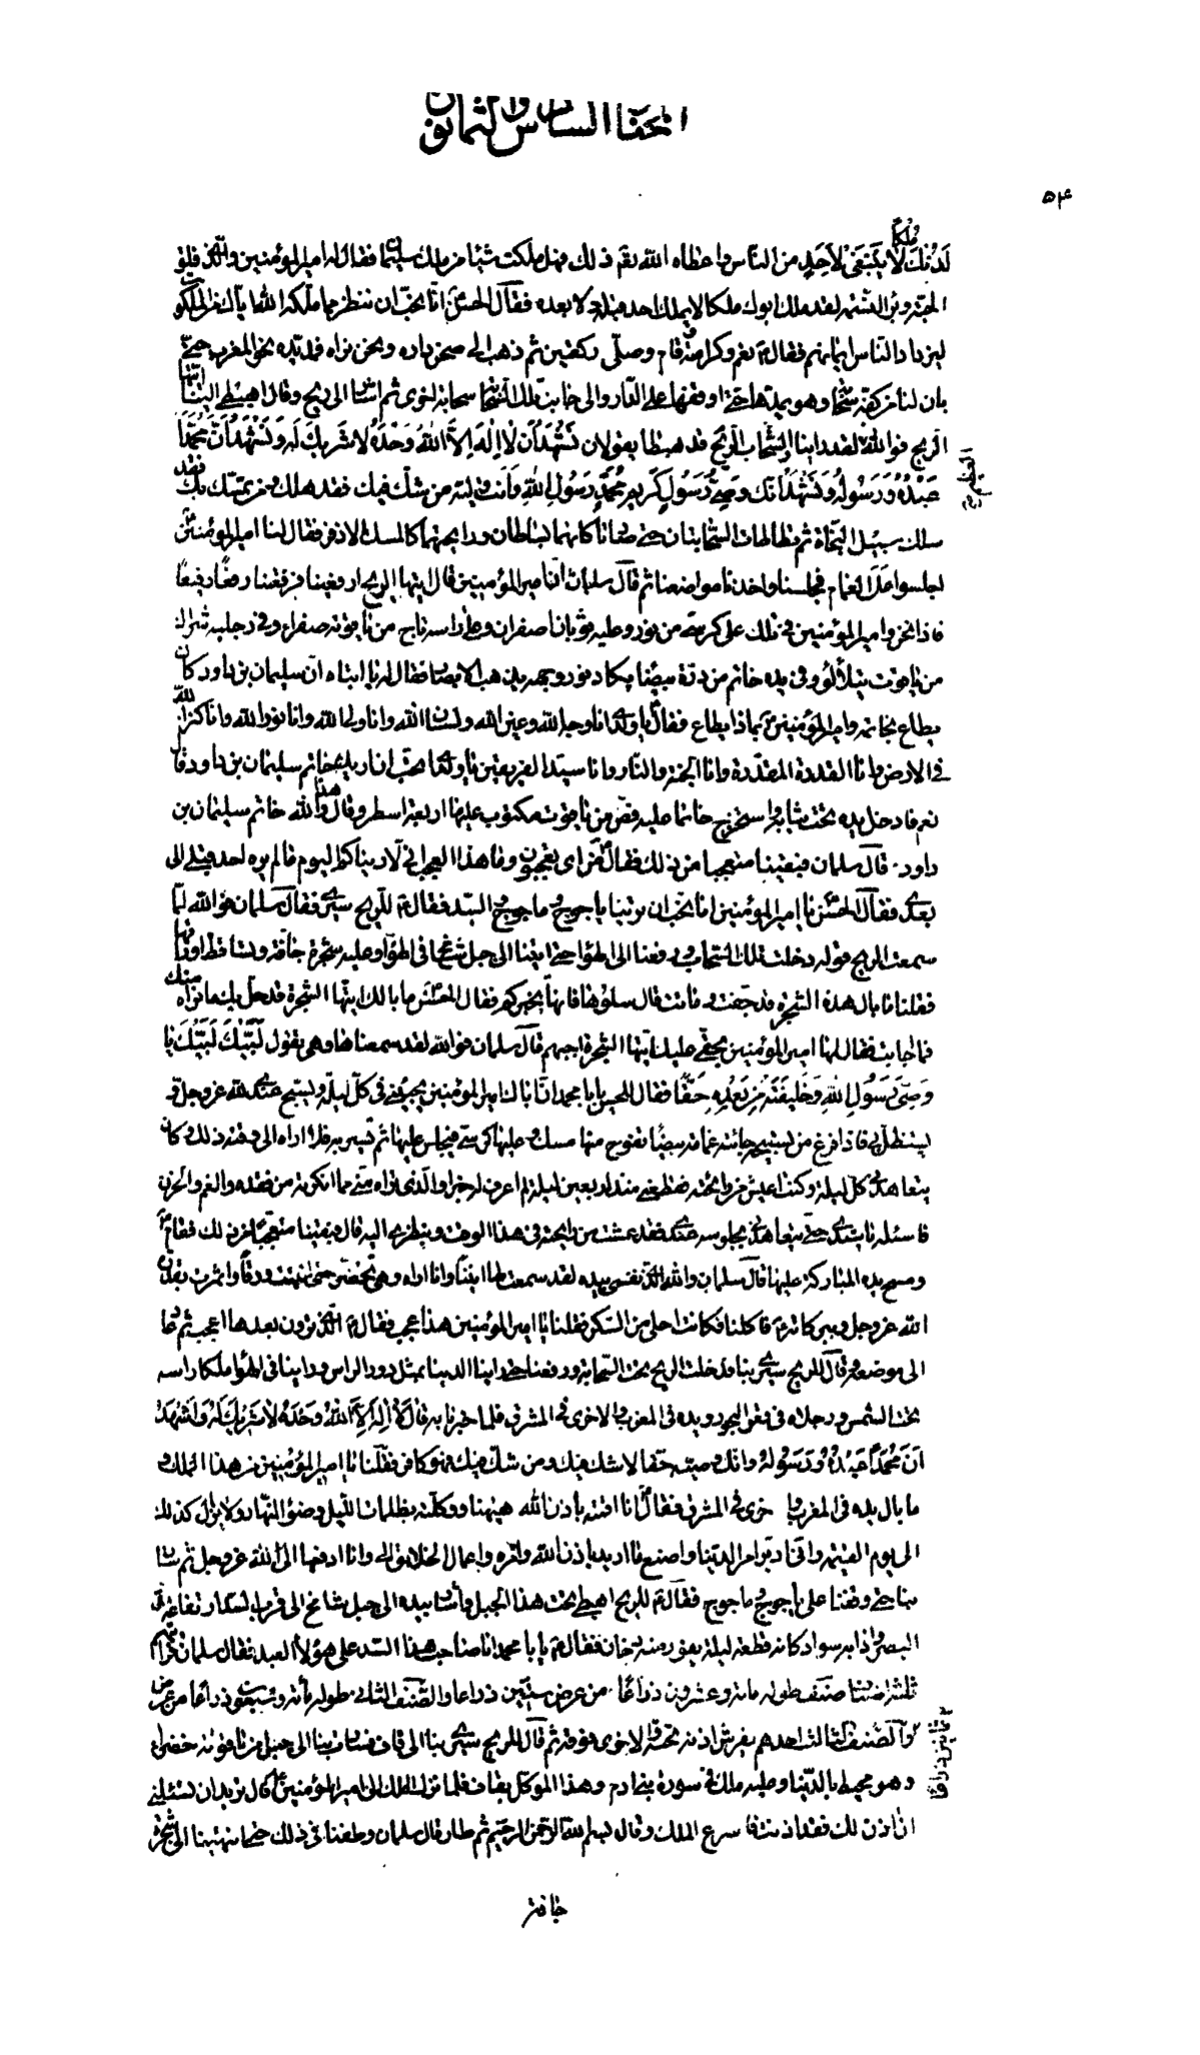 الحقا السادس والثمانون
۵۴
لدنك ملكا لا ينبغى لاحد من الناس واعطاه الله نعم ذلك فهل ملكت شيئا من ملك سليمان فقال له امير المؤمنين والذى فلق
الحبة وبرأ النسمة لقد ملك ابوك ملكا لا يملك احد قبله ولا بعده فقال الحسن انا نحب ان ننظر مما ملكه الله اباك من الملكوت
ليزداد الناس ايمانهم فقال نعم وكرامة وقام وصلى ركعتين ثم ذهب الى صحن داره ونحن نراه فمد يده نحو المغرب حتى
بان لنا من كفه سحاب وهو يمدها حتى اوقفها على الدار والى جانب تلك السحابة سحابة اخرى ثم اشار الى ريح وقال اهبطى الينا ايتها
الريح فوالله لقد راينا السحاب والريح قد هبطا يقولان نشهد ان لا اله الا الله وحده لا شريك له ونشهد ان محمدا
عبده ورسوله ونشهد انك وصى رسول كريم محمد رسول الله وانت وليه من شك فيك فقد هلك ومن تمسك بك فقد
سلك سبيل النجاة ثم تطاطات السحابتان حتى صارتا كانهما بساطان ورايحتهما كالمسك الاذفر فقال لنا امير المؤمنين
اجلسوا على الغمام فجلسنا واخذنا مواضعنا ثم قال سلمان ان امير المؤمنين قال ايتها الريح ارفعينا فرفعتنا رفعا رفيعا
فاذا نحن وامير المؤمنين فى تلك على كرسى من نور وعليه ثوبان اصفران وعلى راسه تاج من ياقوتة صفراء وفى رجليه شراك
من ياقوت يتلألؤ وفى يده خاتم من درة بيضاء يكاد نور وجهه يذهب الابصار فقال له يا ابتاه ان سليمان بن داود كان
يطاع بخاتمه وامير المؤمنين بماذا يطاع فقال يا ولدى انا وجه الله وعين الله ولسان الله وانا ولى الله وانا نور الله وانا كنز الله
فى الارض وانا القدرة المقدرة وانا الجنة والنار وانا سيد الفريقين يا ولدى اتحب ان اريك خاتم سليمان بن داود قال
نعم فادخل يده تحت ثيابه واستخرج خاتما عليه فص من ياقوت مكتوب عليها اربعة اسطر وقال هذا والله خاتم سليمان بن
داود. قال سلمان فبقينا متعجبا من ذلك فقال من اى تعجبون وما هذا العجب انى لارينكم اليوم ما لم يره احد قبلى ولا
بعدى فقال الحسن يا امير المؤمنين انا نحب ان ترينا ياجوج وماجوج والسد فقال للريح سيرى فقال سلمان فوالله لما
سمعت الريح قوله دخلت تلك السحاب ورفعنا الى الهواء حتى اتينا الى جبل شامخ فى الهواء وعليه شجرة جافة وتساقط اوراقها
فقلنا ما بال هذه الشجرة قد جفت وماتت قال سلوها فانها تخبركم فقال الحسن ما بالك ايتها الشجرة قد حل بك ما نراه منك
فما اجابت فقال لها امير المؤمنين بحقى عليك ايتها الشجرة اجيبهم قال سلمان فوالله لقد سمعناها وهى تقول لبيك لبيك يا
وصى رسول الله وخليفته من بعده حقا فقال للحسن يا با محمد ان اباك امير المؤمنين يجيئنى فى كل ليلة ويسبح عندى لله عز وجل و
يستظل بى فاذا فرغ من تسبيحه جائته غمامة بيضاء تفوح منها مسك وعليها كرسى فيجلس عليها ثم تسير به فلا اراه الى وقته ذلك وكان
يتعاهدنى كل ليلة وكنت اعيش من رايحته فقطعنى منذ اربعين ليلة لم اعرف له خبرا والذى تراه منى مما انكرته من فقده والغم والحزن
فاسئله يا سيدى حتى يتعاهدنى بجلوسه عندى فقد عشت من رايحته فى هذا الوقت وبنظرى اليه قال فبقينا متعجبا من ذلك فقام
ومسح يده المباركة عليها قال سلمان والله الذى نفسى بيده لقد سمعت لها انينا وانا اراه وهى تخضر حتى انبتت ورقا واثمرت بقدرة
الله عز وجل وببركاته فاكلنا فكانت احلى من السكر فقلنا يا امير المؤمنين هذا عجب فقال الذى ترون بعدها اعجب ثم عاد
الى موضعه وقال للريح سيرى بنا فدخلت الريح تحت السحابة ورفعنا حتى راينا الدنيا بمثل دور الراس وراينا فى الهواء ملكا راسه
تحت الشمس ورجلاه فى قعر البحر ويده فى المغرب والاخرى فى المشرق فلما خبرنا به قال لا اله الا الله وحده لا شريك له واشهد
ان محمدا عبده ورسوله وانك وصيه حقا لا شك فيك ومن شك فيك فهو كافر فقلنا يا امير المؤمنين من هذا الملك و
ما بال يده فى المغرب واخرى فى المشرق فقال انا اقمته باذن الله هيهنا ووكلته بظلمات الليل وضوء النهار ولا يزال كذلك
الى يوم القيمة وانى ادبر امر الدنيا واصنع ما اريد باذن الله وامره واعمال الخلايق الى وانا ارفعها الى الله عز وجل ثم سار
بنا حتى وقفنا على ياجوج وماجوج فقال للريح اهبطى تحت هذا الجبل واشار بيده الى جبل شامخ الى قرب السد ارتفاعه مد
البصر واذا به سواد كانه قطعة ليلة يفور منه دخان فقال يا با محمد انا صاحب هذا السد على هؤلاء العبيد فقال سلمان فرايتهم
ثلثة اصناف صنف طوله مائة وعشرون ذراعا. من عرض ستين ذراعا والصنف الثانى طوله مائة وسبعون ذراعا من عرض
والصنف الثالث احدهم يفرش اذنه تحته والاخرى فوقه ثم قال للريح سيرى بنا الى قاف فسارت بنا الى جبل من ياقوتة خضراء
وهو محيط بالدنيا وعليه ملك فى سورة بنى ادم وهذا الموكل بقاف فلما نزل الملك الى امير المؤمنين قال تريد ان تسئلنى
ان اذن لك فقد اذنت فاسرع الملك وقال بسم الله الرحمن الرحيم ثم طار قال سلمان وطفنا فى ذلك حتى انتهينا الى شجرة
جافة